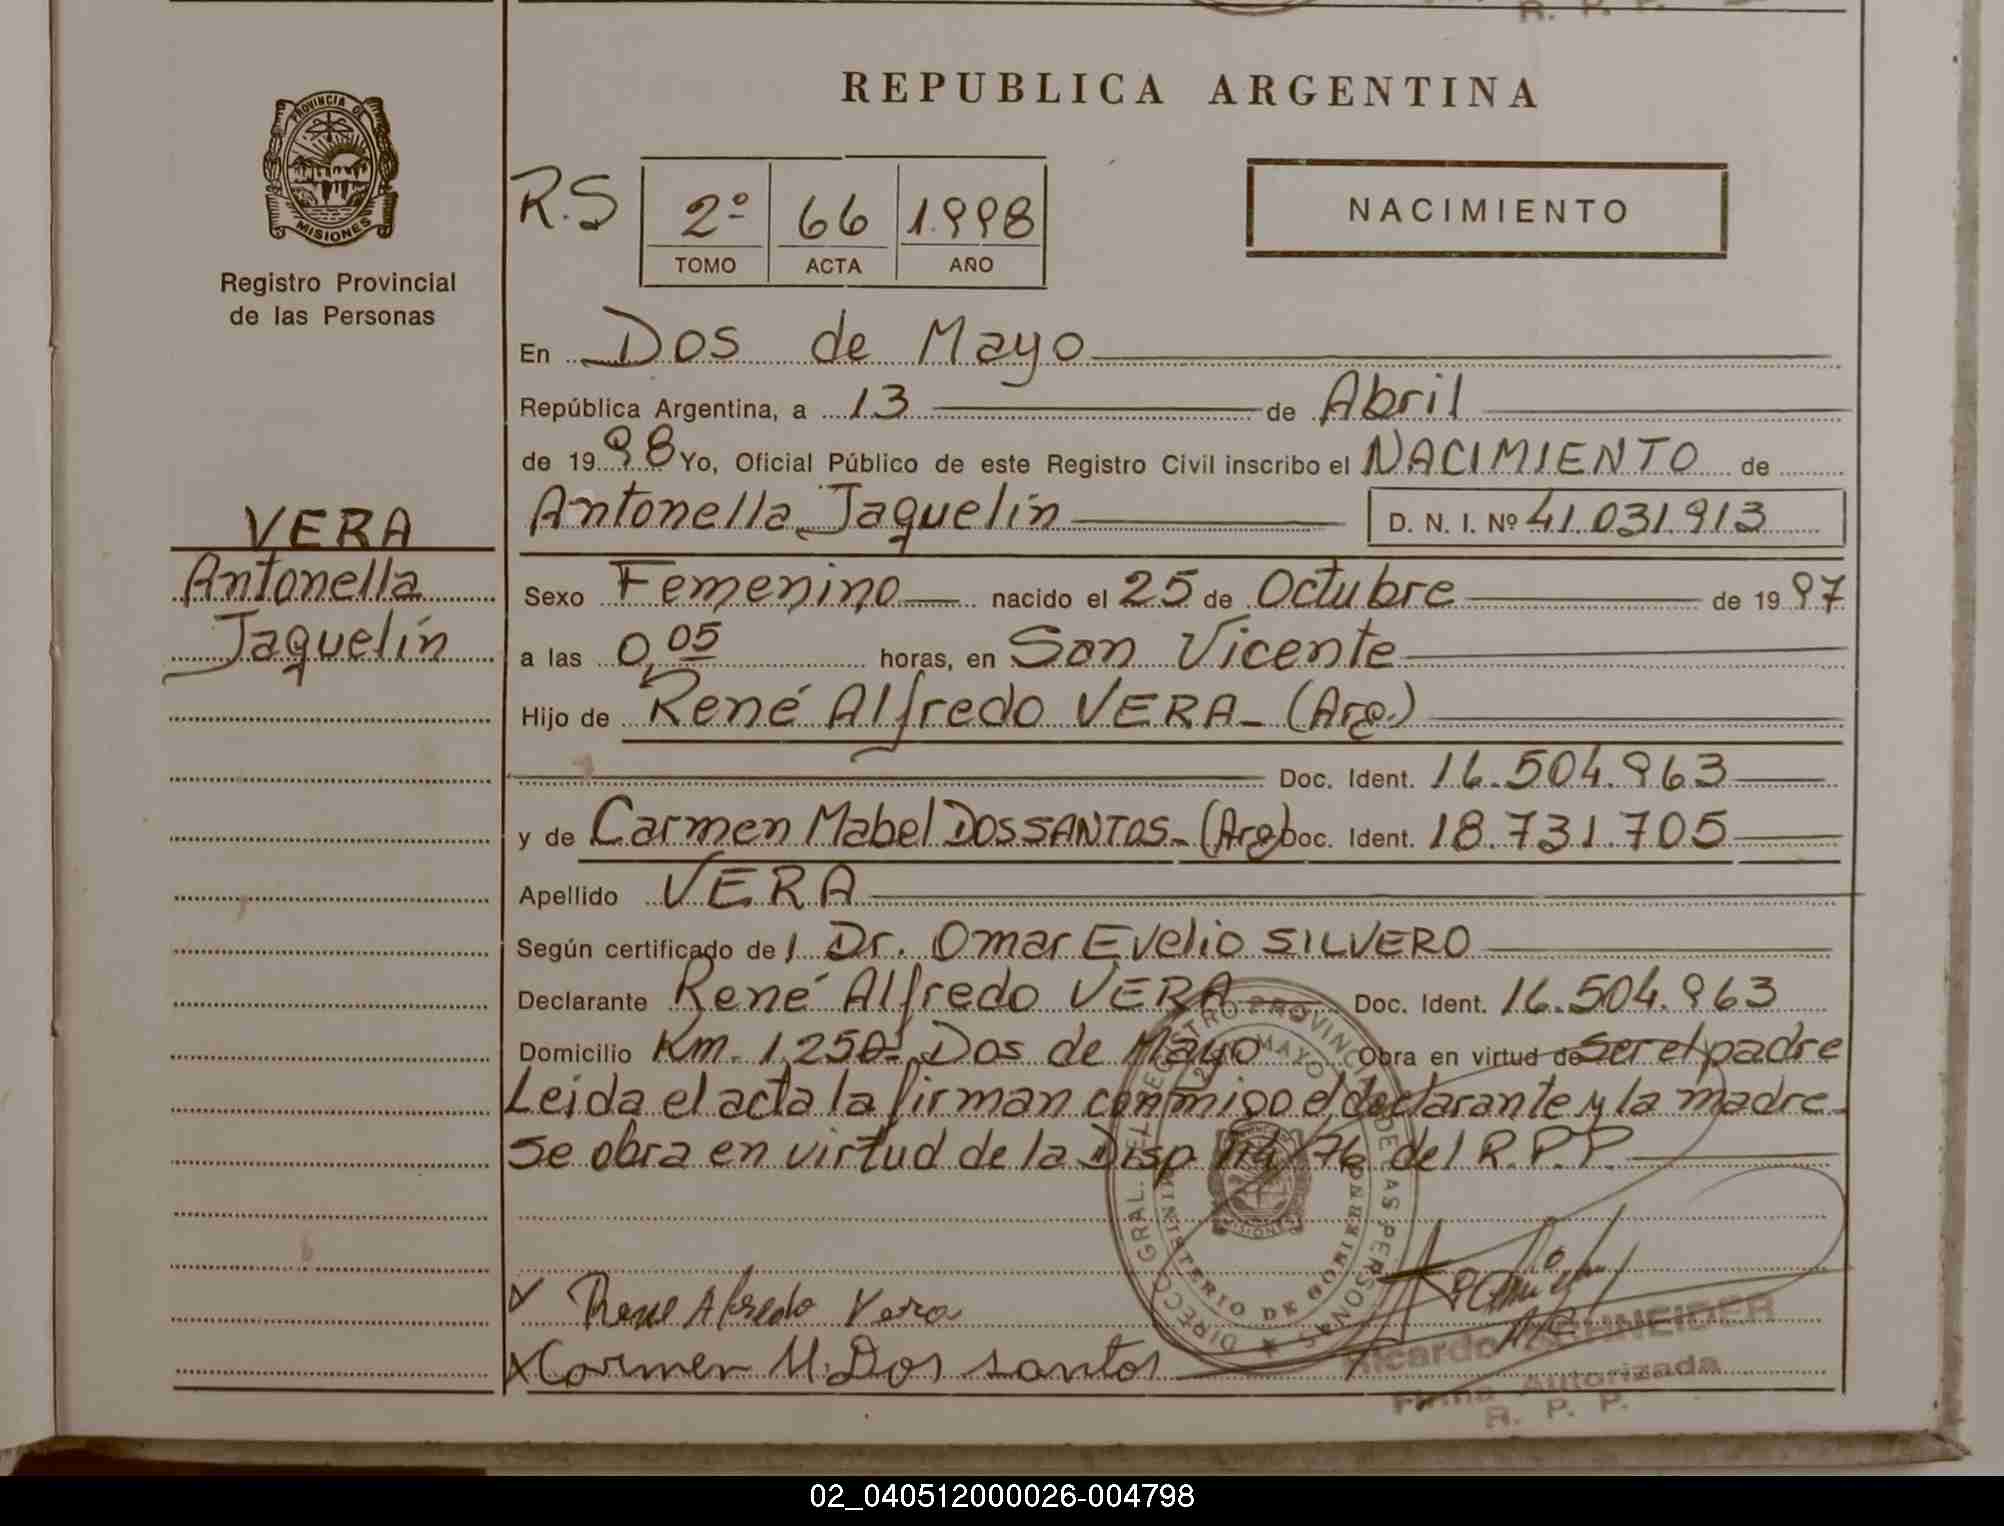 R. P. P.
REPUBLICA ARGENTINA
PROVINCIA DE
MISIONES
Registro Provincial
de las Personas
R.S
2º 66 1.998
TOMO ACTA AÑO
NACIMIENTO
En Dos de Mayo
República Argentina, a 13 de Abril
de 1998 Yo, Oficial Público de este Registro Civil inscribo el NACIMIENTO de
Antonella Jaquelín D. N. I. Nº 41.031.913
VERA
Antonella
Jaquelín
Sexo Femenino nacido el 25 de Octubre de 1997
a las 0,05 horas, en San Vicente
Hijo de René Alfredo VERA - (Arg.)
Doc. Ident. 16.504.963
y de Carmen Mabel DOS SANTOS - (Arg) Doc. Ident. 18.731.705
Apellido VERA
Según certificado de l Dr. Omar Evelio SILVERO
Declarante René Alfredo VERA Doc. Ident. 16.504.963
Domicilio Km. 1.250- Dos de Mayo Obra en virtud de ser el padre
Leida el acta la firman conmigo el declarante y la madre.
Se obra en virtud de la Disp. 114/76 del R.P.P.
DIRECC. GRAL. DEL REGISTRO PROVINCIAL DE LAS PERSONAS
2 DE MAYO
MINISTERIO DE GOBIERNO
MISIONES
Rene Alfredo Vera
x Carmen M. Dos santos
Ricardo SCHNEIDER
Firma Autorizada
R. P. P.
02_040512000026-004798